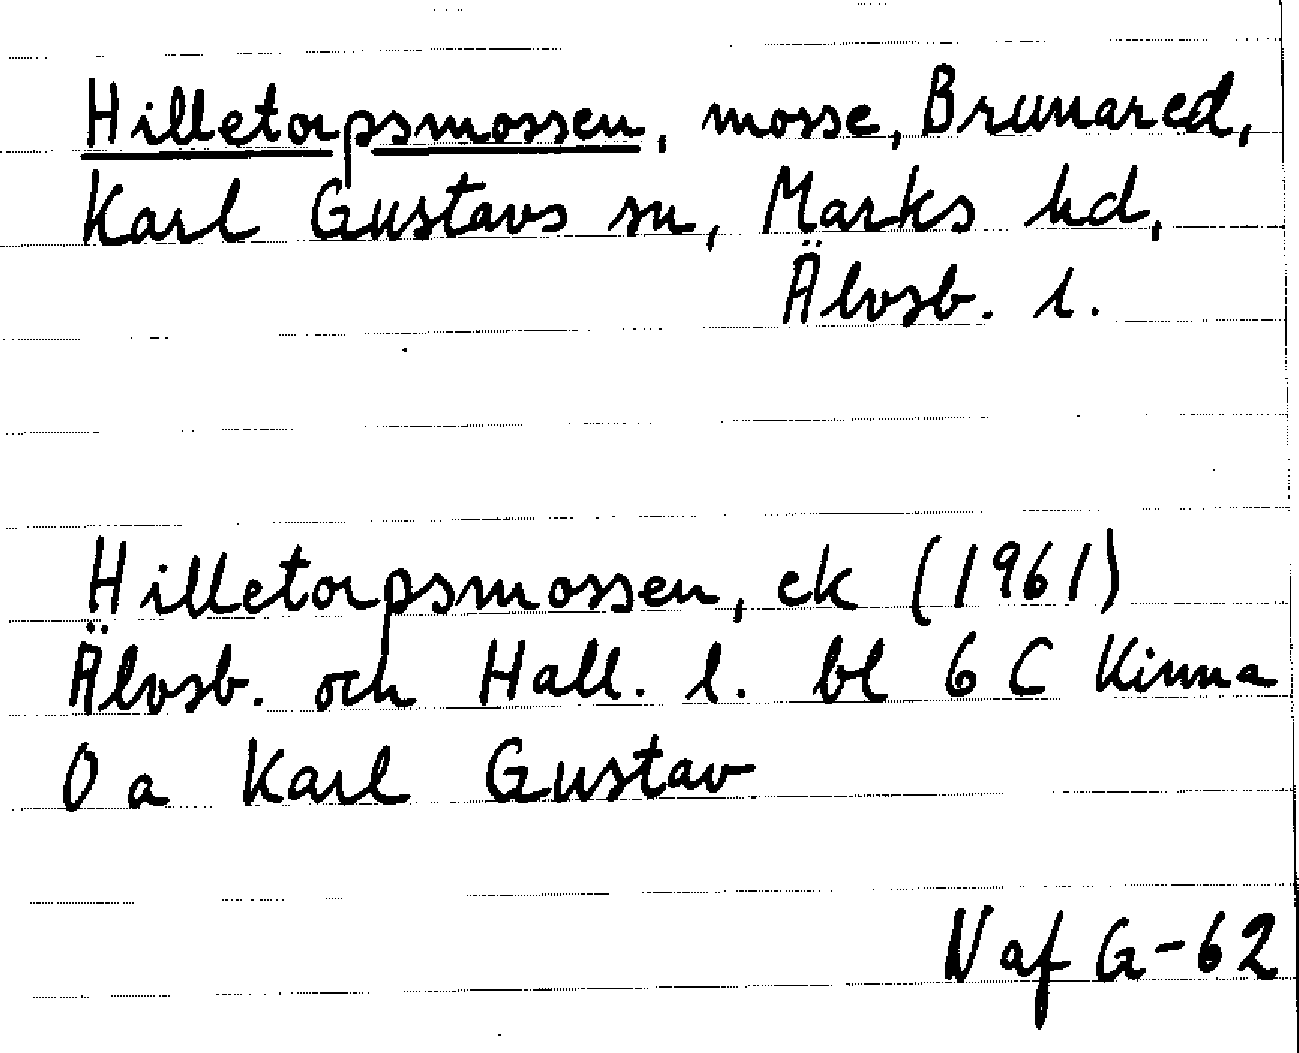 Hilletorpsmossen, mosse, Brunared,
Karl Gustavs sn, Marks hd,
Älvsb. l.
Hilletorpsmossen, ek (1961)
Älvsb. och Hall. l. bl 6 C Kinna
O a Karl Gustav
N af G-62